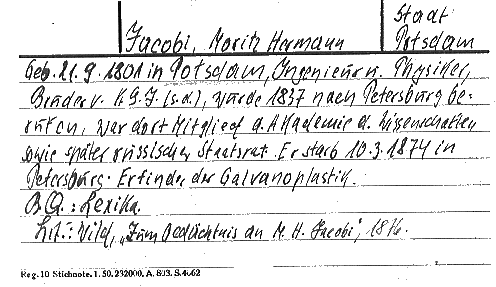 Jacobi, Moritz Hermann
Stadt
Potsdam
Geb. 21.9.1801 in Potsdam, Ingenieur u. Physiker,
Bruder v. K.G.J. (s.d.), wurde 1837 nach Petersburg be-
rufen, war dort Mitglied d. Akademie d. Wissenschaften
sowie später russischer Staatsrat. Er starb 10.3.1874 in
Petersburg. Erfinder der Galvanoplastik.
B.Q.: Lexika.
Lit.: Wild, „Zum Gedächtnis an M. H. Jacobi", 1876.
Reg. 10 Stichnote. 1. 50. 232000. A. 803. S. 4.62